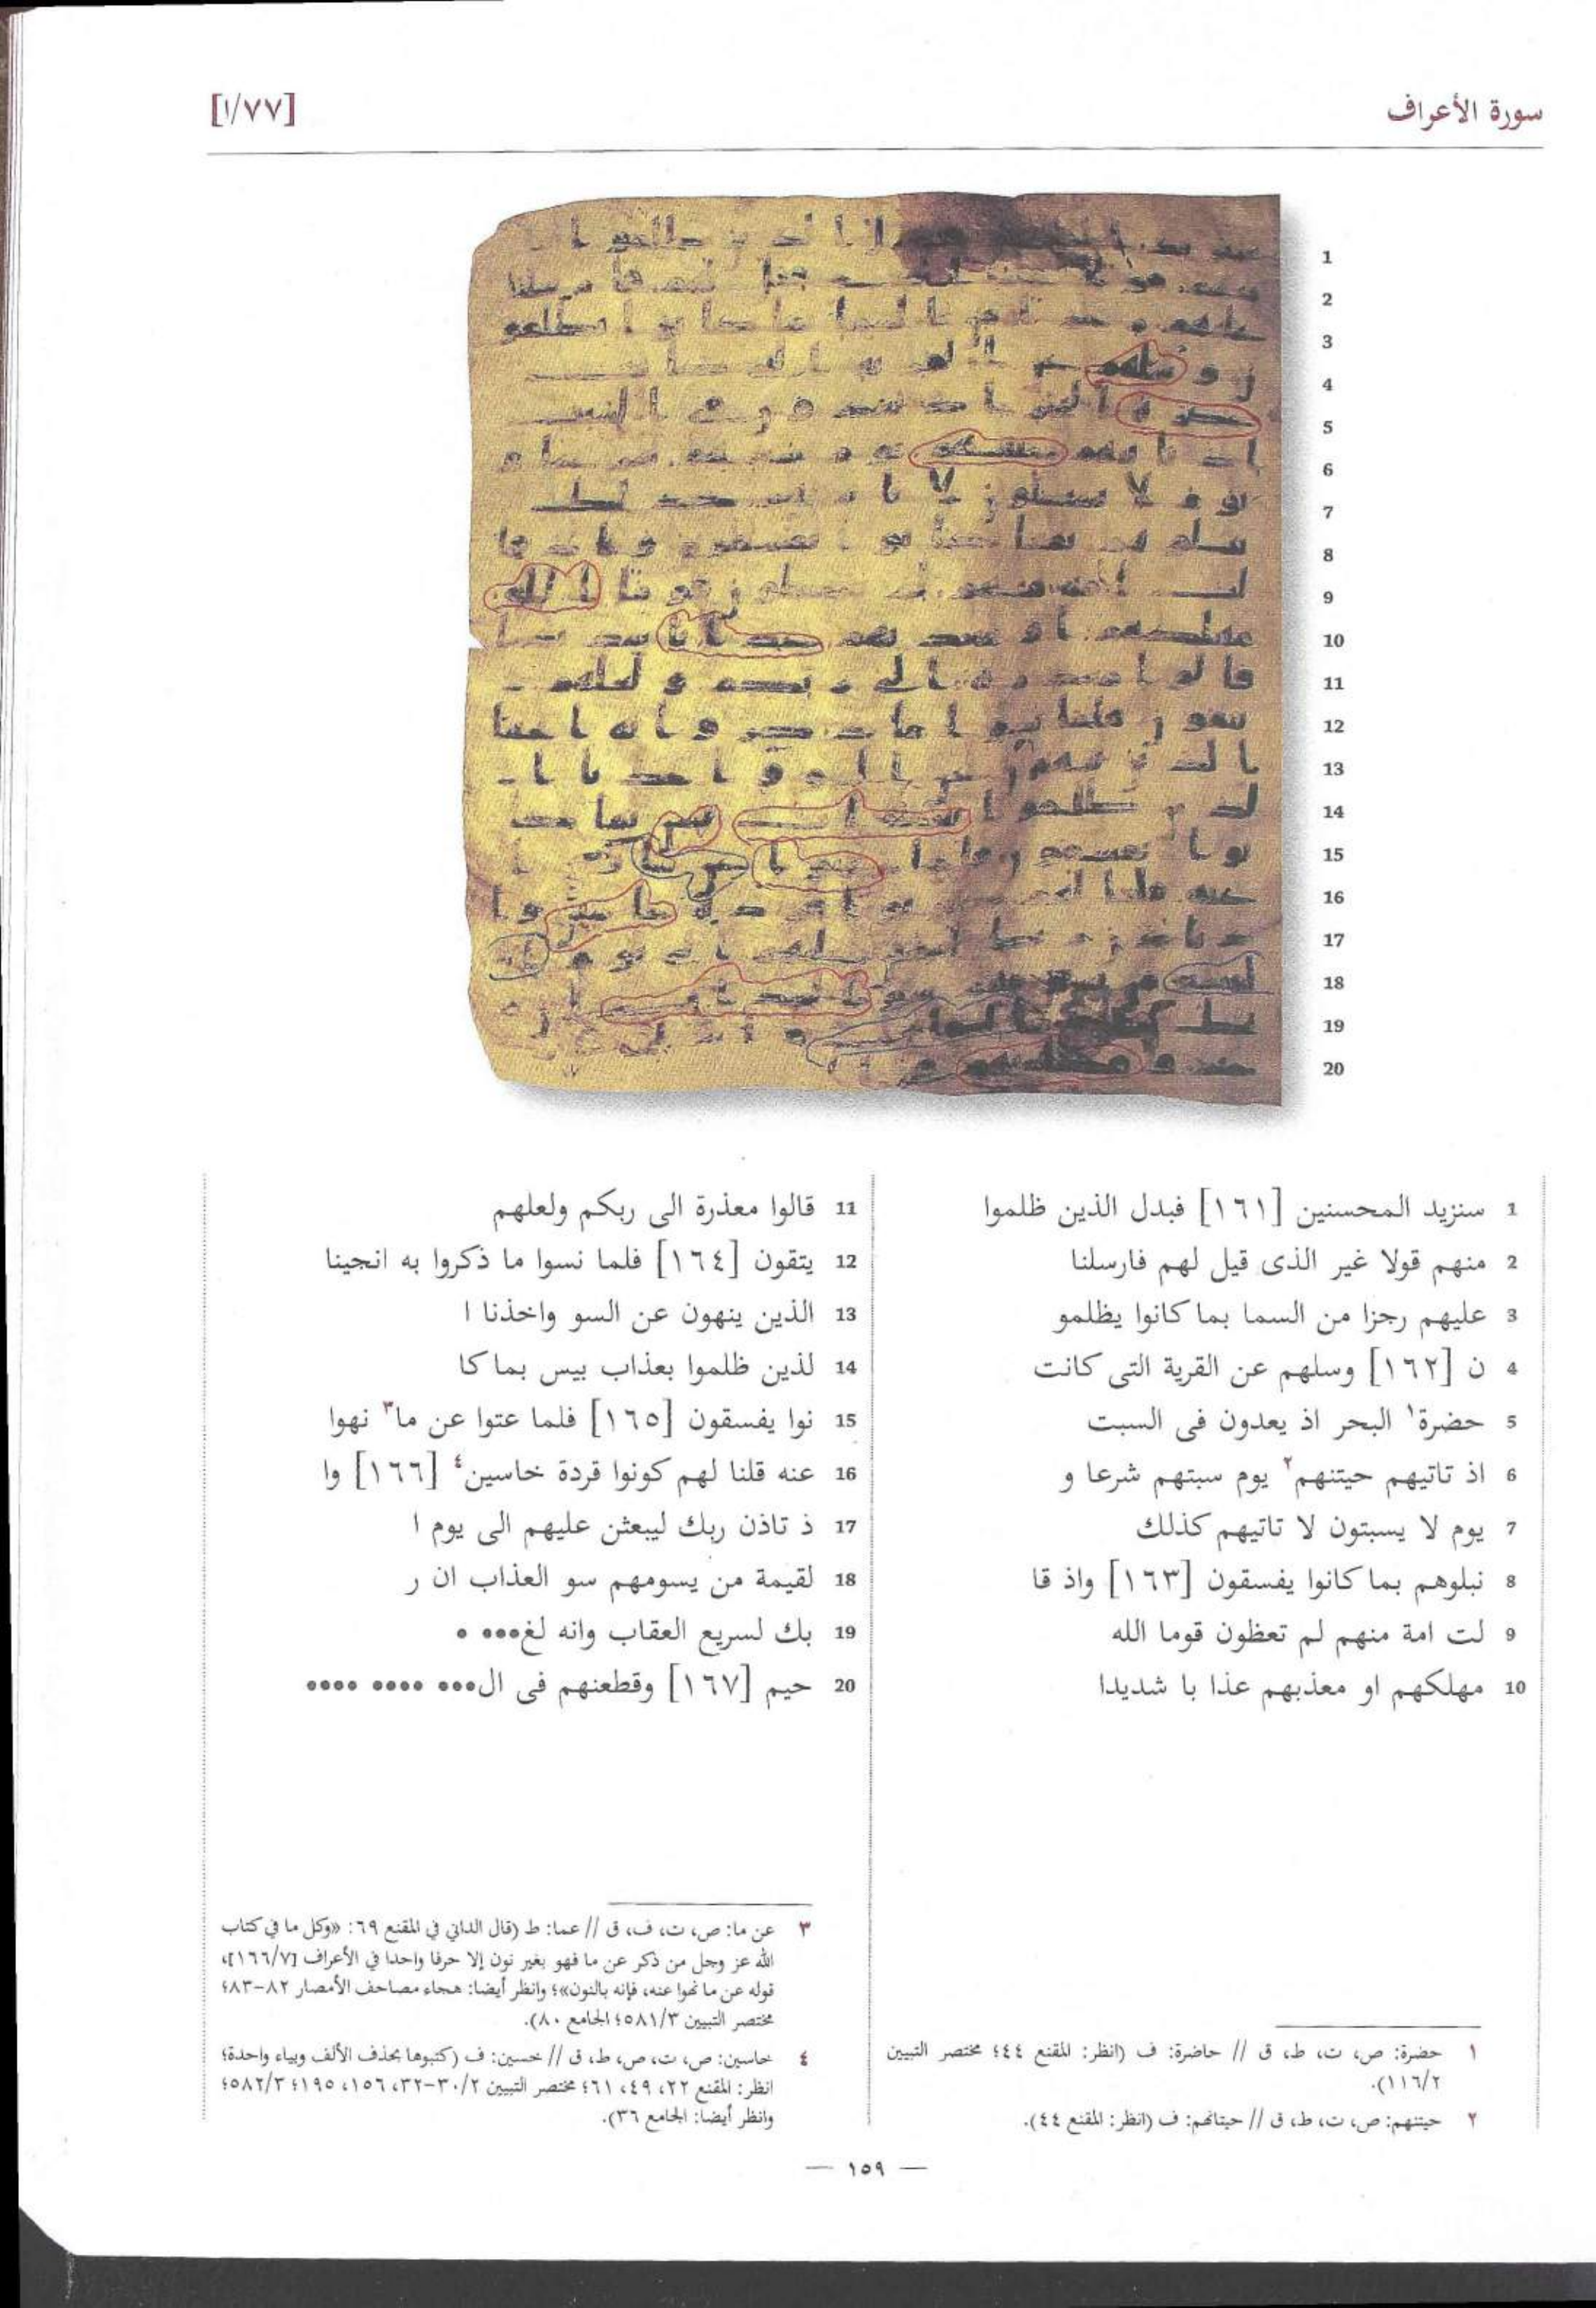 سورة الأعراف
[١/٧٧]
1 سنزيد المحسنين [١٦١] فبدل الذين ظلموا
2 منهم قولا غير الذى قيل لهم فارسلنا
3 عليهم رجزا من السما بما كانوا يظلمو
4 ن [١٦٢] وسلهم عن القرية التى كانت
5 حضرة١ البحر اذ يعدون فى السبت
6 اذ تاتيهم حيتنهم٢ يوم سبتهم شرعا و
7 يوم لا يسبتون لا تاتيهم كذلك
8 نبلوهم بما كانوا يفسقون [١٦٣] واذ قا
9 لت امة منهم لم تعظون قوما الله
10 مهلكهم او معذبهم عذا با شديدا
11 قالوا معذرة الى ربكم ولعلهم
12 يتقون [١٦٤] فلما نسوا ما ذكروا به انجينا
13 الذين ينهون عن السو واخذنا ا
14 لذين ظلموا بعذاب بيس بما كا
15 نوا يفسقون [١٦٥] فلما عتوا عن ما٣ نهوا
16 عنه قلنا لهم كونوا قردة خاسين٤ [١٦٦] وا
17 ذ تاذن ربك ليبعثن عليهم الى يوم ا
18 لقيمة من يسومهم سو العذاب ان ر
19 بك لسريع العقاب وانه لغ••• •
20 حيم [١٦٧] وقطعنهم فى ال••• •••• ••••
١ حضرة: ص، ت، ط، ق // حاضرة: ف (انظر: المقنع ٤٤؛ مختصر التبيين
١١٦/٢).
٢ حيتنهم: ص، ت، ط، ق // حيتانهم: ف (انظر: المقنع ٤٤).
٣ عن ما: ص، ت، ف، ق // عما: ط (قال الداني في المقنع ٦٩: «وكل ما في كتاب
الله عز وجل من ذكر عن ما فهو بغير نون إلا حرفا واحدا في الأعراف [١٦٦/٧]،
قوله عن ما نهوا عنه، فإنه بالنون»؛ وانظر أيضا: هجاء مصاحف الأمصار ٨٢-٨٣؛
مختصر التبيين ٥٨١/٣؛ الجامع ٨٠).
٤ خاسين: ص، ت، ص، ط، ق // خسين: ف (كتبوها بحذف الألف وبياء واحدة؛
انظر: المقنع ٢٢، ٤٩، ٦١؛ مختصر التبيين ٣٠/٢-٣٢، ١٥٦، ١٩٥؛ ٥٨٢/٣؛
وانظر أيضا: الجامع ٣٦).
— ١٥٩ —